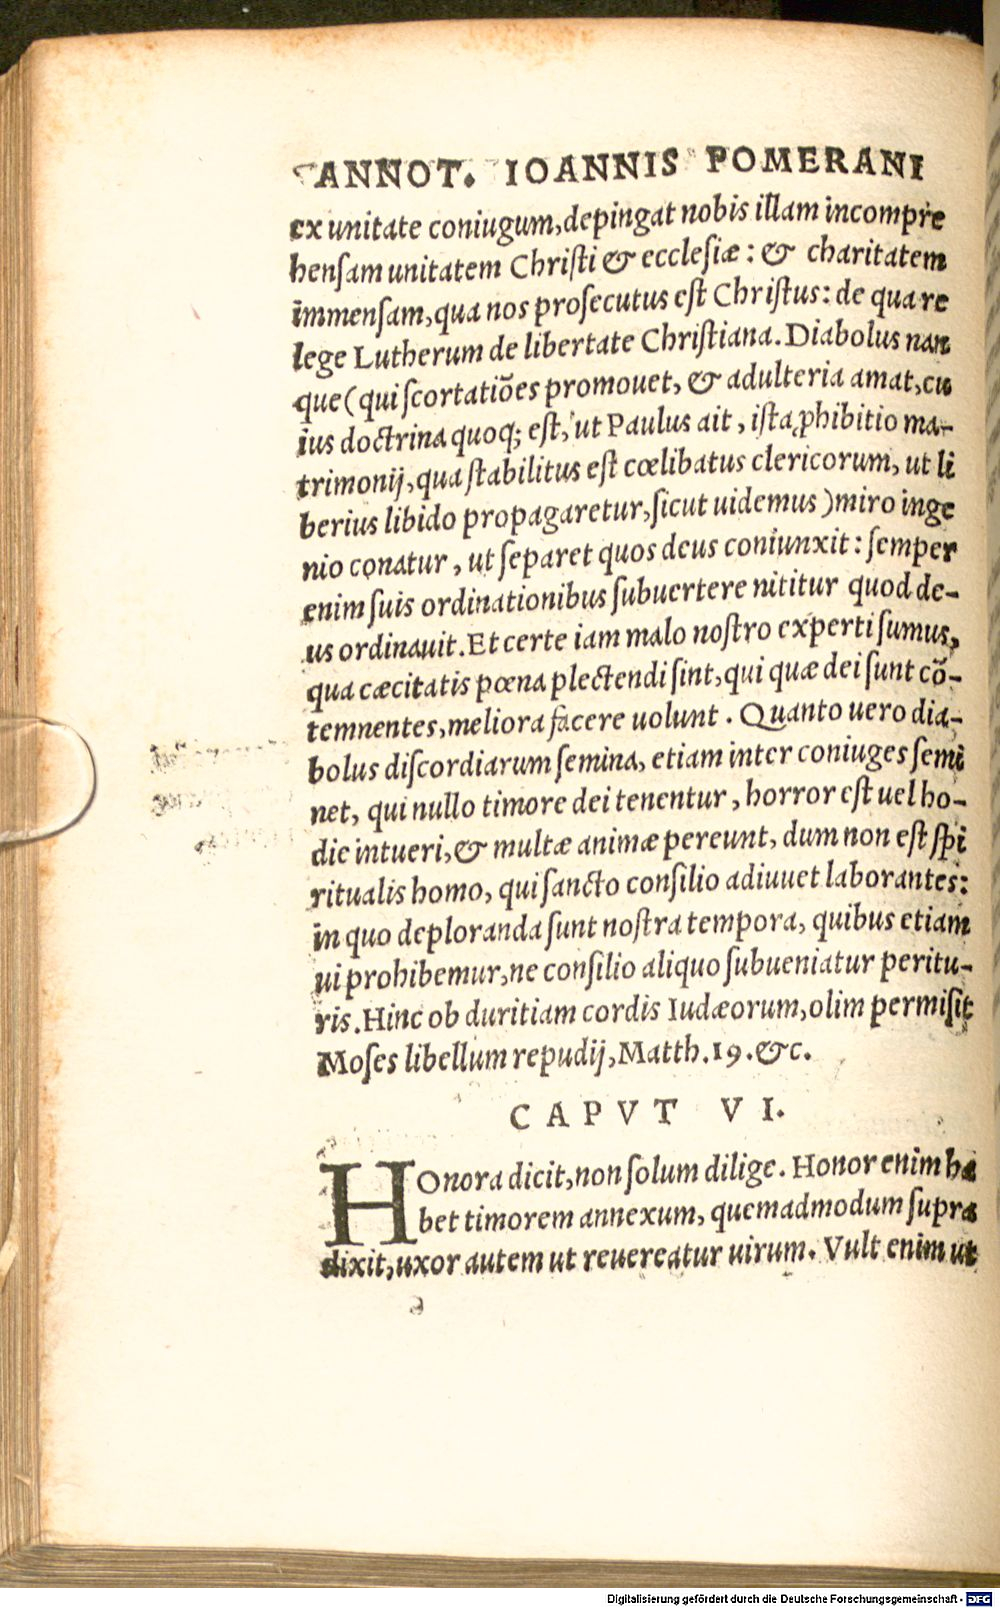 ANNOT. IOANNIS POMERANI
ex unitate coniugum,depingat nobis illam incompre
hensam unitatem Christi & ecclesiæ: & charitatem
immensam,qua nos prosecutus est Christus: de qua re
lege Lutherum de libertate Christiana. Diabolus nan
que (qui scortatiões promouet, & adulteria amat,cu
ius doctrina quoq; est, ut Paulus ait, ista ꝓhibitio ma-
trimonij,qua stabilitus est cœlibatus clericorum, ut li
berius libido propagaretur,sicut uidemus) miro inge
nio conatur, ut separet quos deus coniunxit: semper
enim suis ordinationibus subuertere nititur quod de-
us ordinauit. Et certe iam malo nostro experti sumus,
qua cæcitatis pœna plectendi sint,qui quæ dei sunt cõ-
temnentes,meliora facere uolunt. Quanto uero dia-
bolus discordiarum semina, etiam inter coniuges semi
net, qui nullo timore dei tenentur, horror est uel ho-
die intueri,& multæ animæ pereunt, dum non est spi
ritualis homo, qui sancto consilio adiuuet laborantes:
in quo deploranda sunt nostra tempora, quibus etiam
ui prohibemur,ne consilio aliquo subueniatur peritu-
ris. Hinc ob duritiam cordis Iudæorum,olim permisit
Moses libellum repudij,Matth.19.&c.
CAPVT VI.
HOnora dicit,non solum dilige. Honor enim ha
bet timorem annexum, quemadmodum supra
dixit,uxor autem ut reuereatur uirum. Vult enim ut
Digitalisierung gefördert durch die Deutsche Forschungsgemeinschaft - DFG